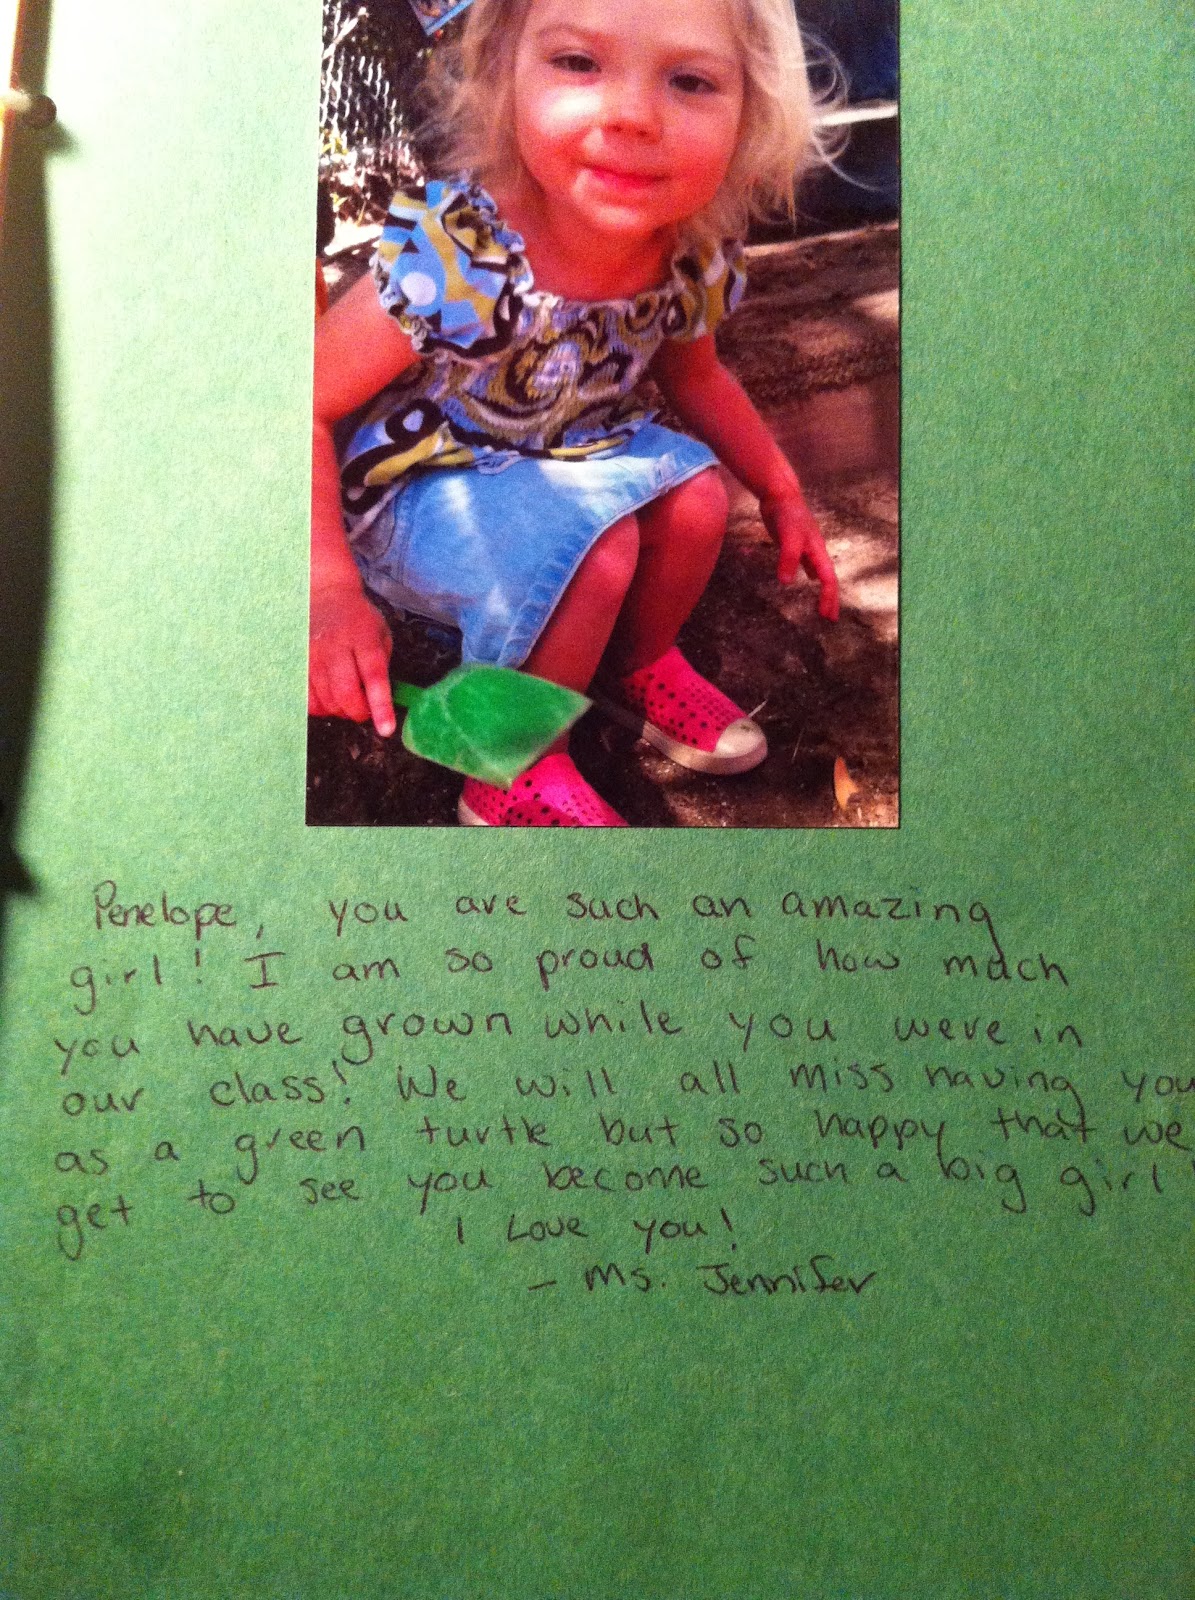 Penelope, you are such an amazing
girl! I am so proud of how much
you have grown while you were in
our class! We will all miss having you
as a green turtle but so happy that we
get to see you become such a big girl!
I Love you!
- Ms. Jennifer